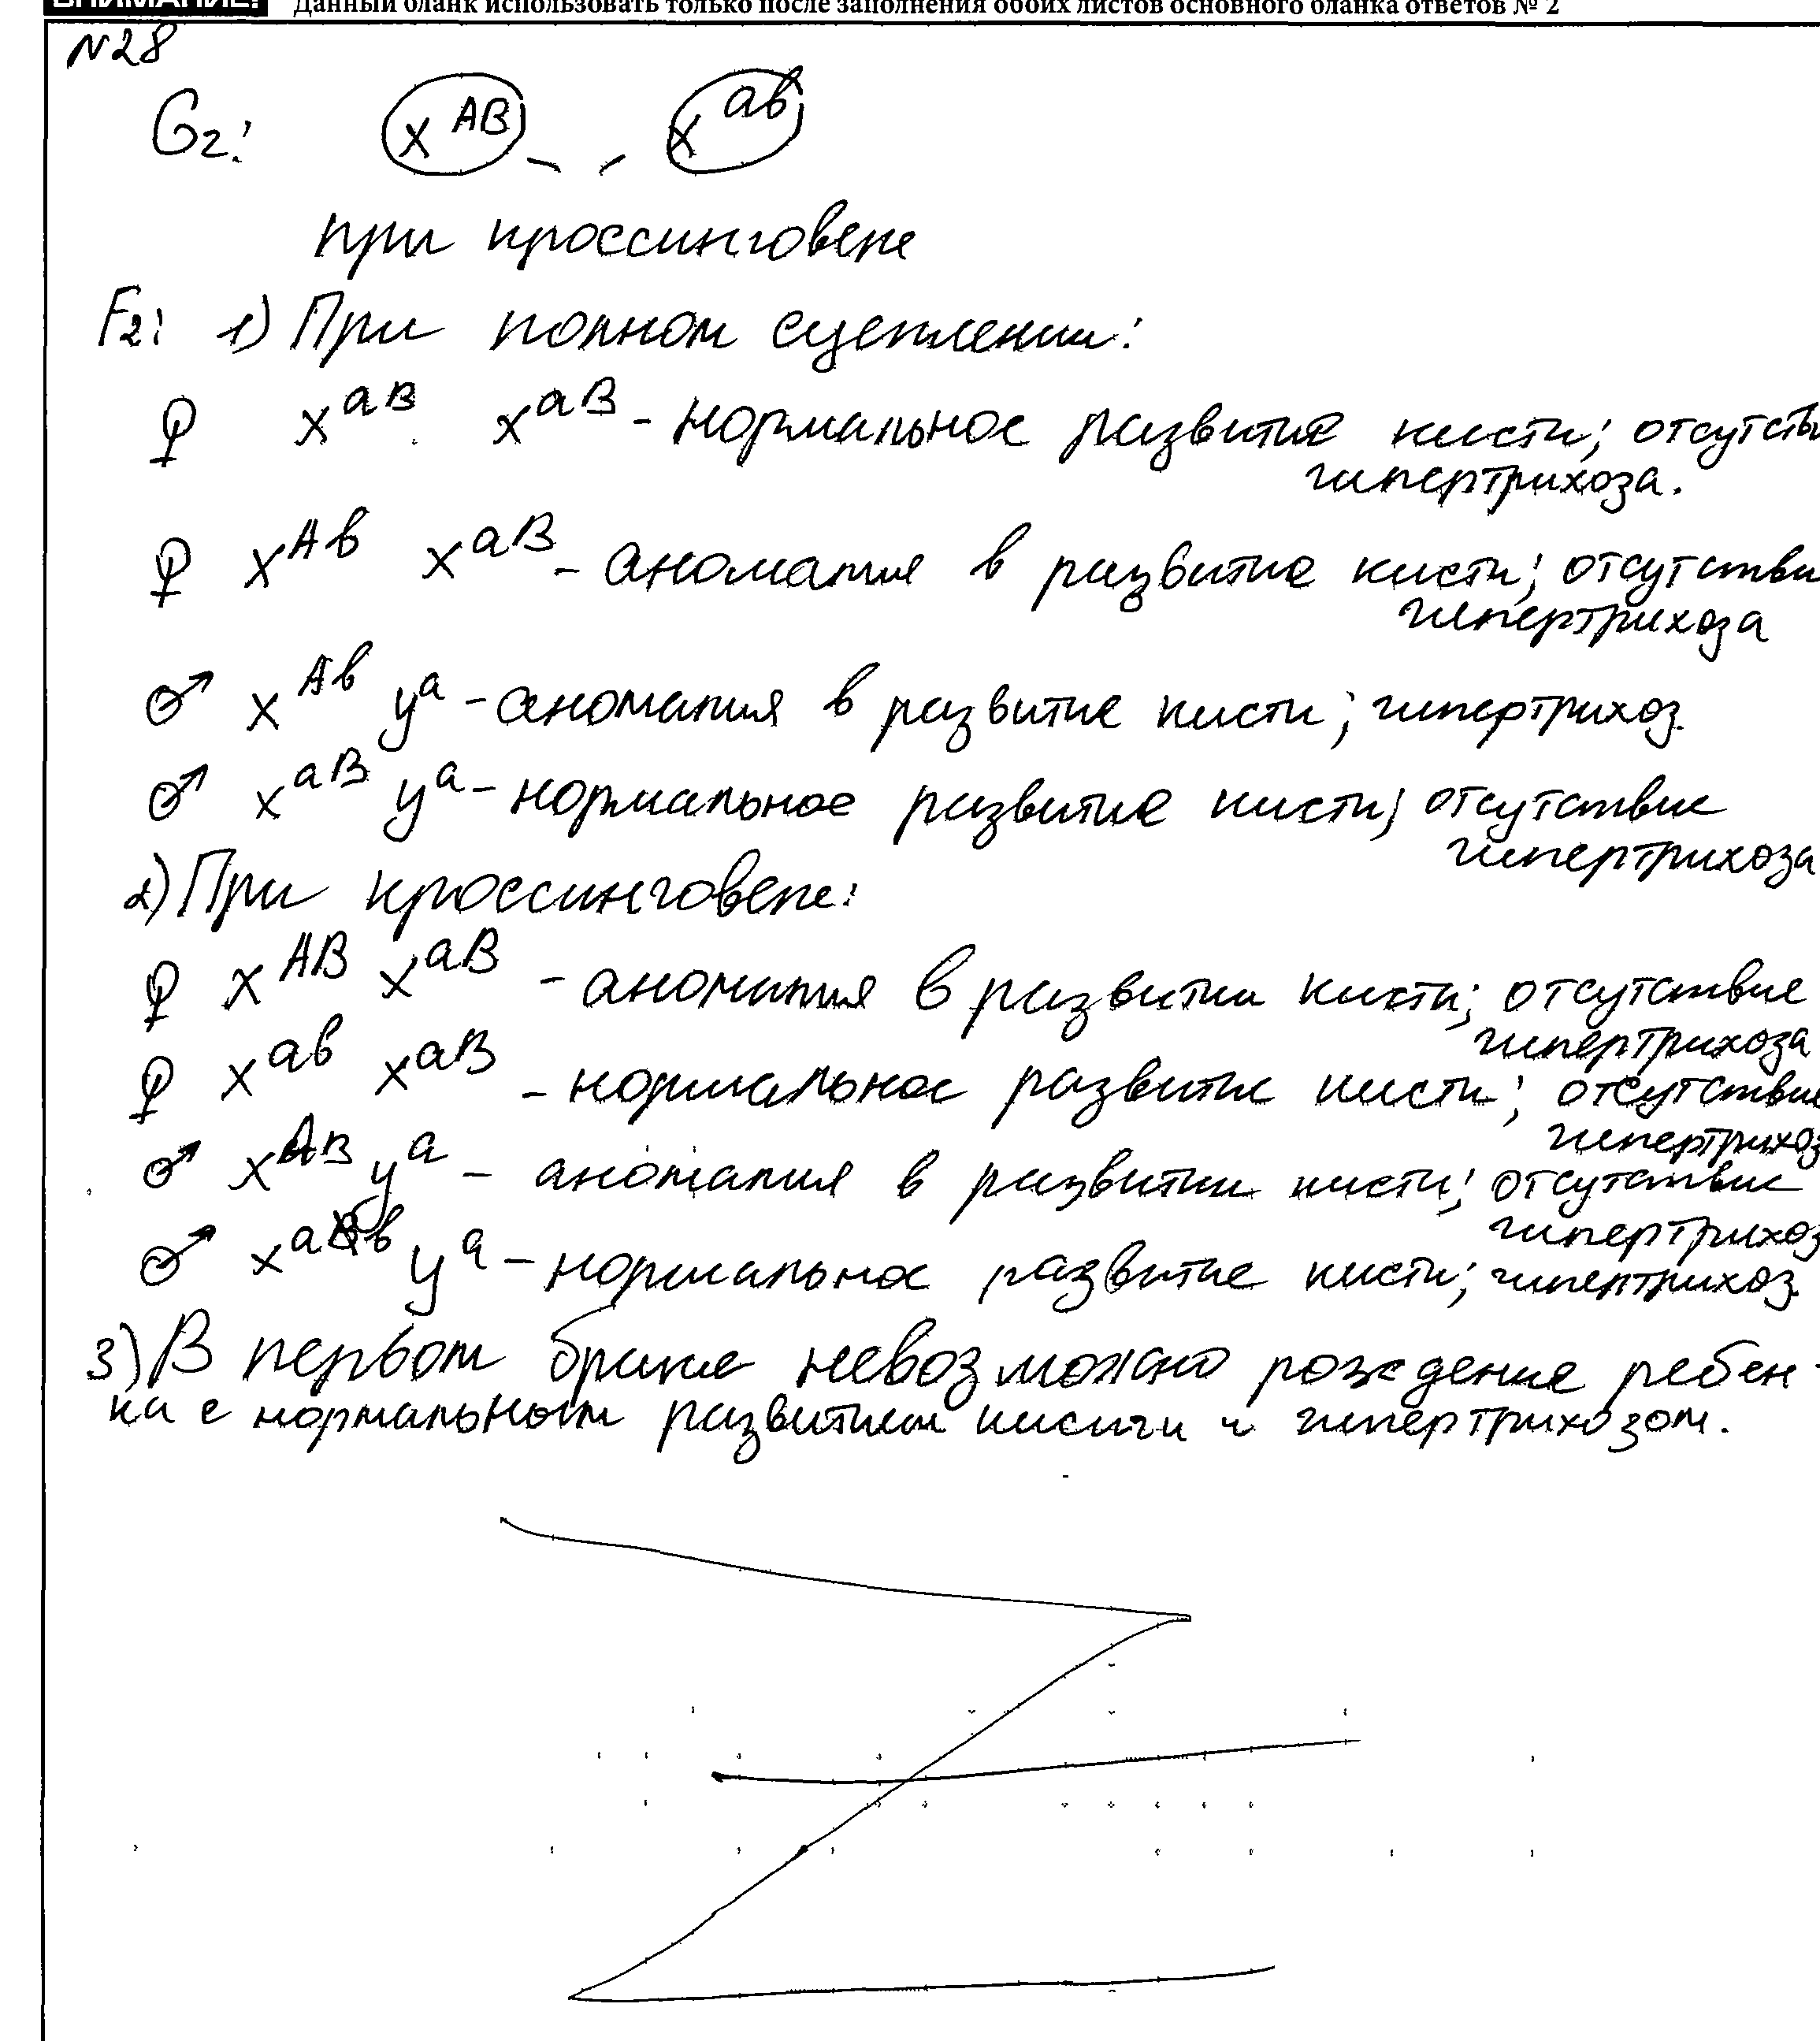 ВНИМАНИЕ! Данный бланк использовать только после заполнения обоих листов основного бланка ответов № 2
№28
G₂: X^AB , X^ab
при кроссинговере
F₂: 1) При полном сцеплении:
♀ X^aB X^aB - нормальное развитие кисти; отсутстви
гипертрихоза.
♀ X^Ab X^aB - аномалия в развитие кисти; отсутстви
гипертрихоза
♂ X^Ab Y^a - аномалия в развитие кисти; гипертрихоз.
♂ X^aB Y^a - нормальное развитие кисти; отсутствие
гипертрихоза
2) При кроссинговере:
♀ X^AB X^aB - аномалия в развитии кисти; отсутствие
гипертрихоза
♀ X^ab X^aB - нормальное развитие кисти; отсутствие
гипертрихоз
♂ X^AB Y^a - аномалия в развитии кисти; отсутствие
гипертрихоз
♂ X^ab Y^a - нормальное развитие кисти; гипертрихоз.
3) В первом браке невозможно рождение ребен-
ка с нормальным развитием кисти и гипертрихозом.